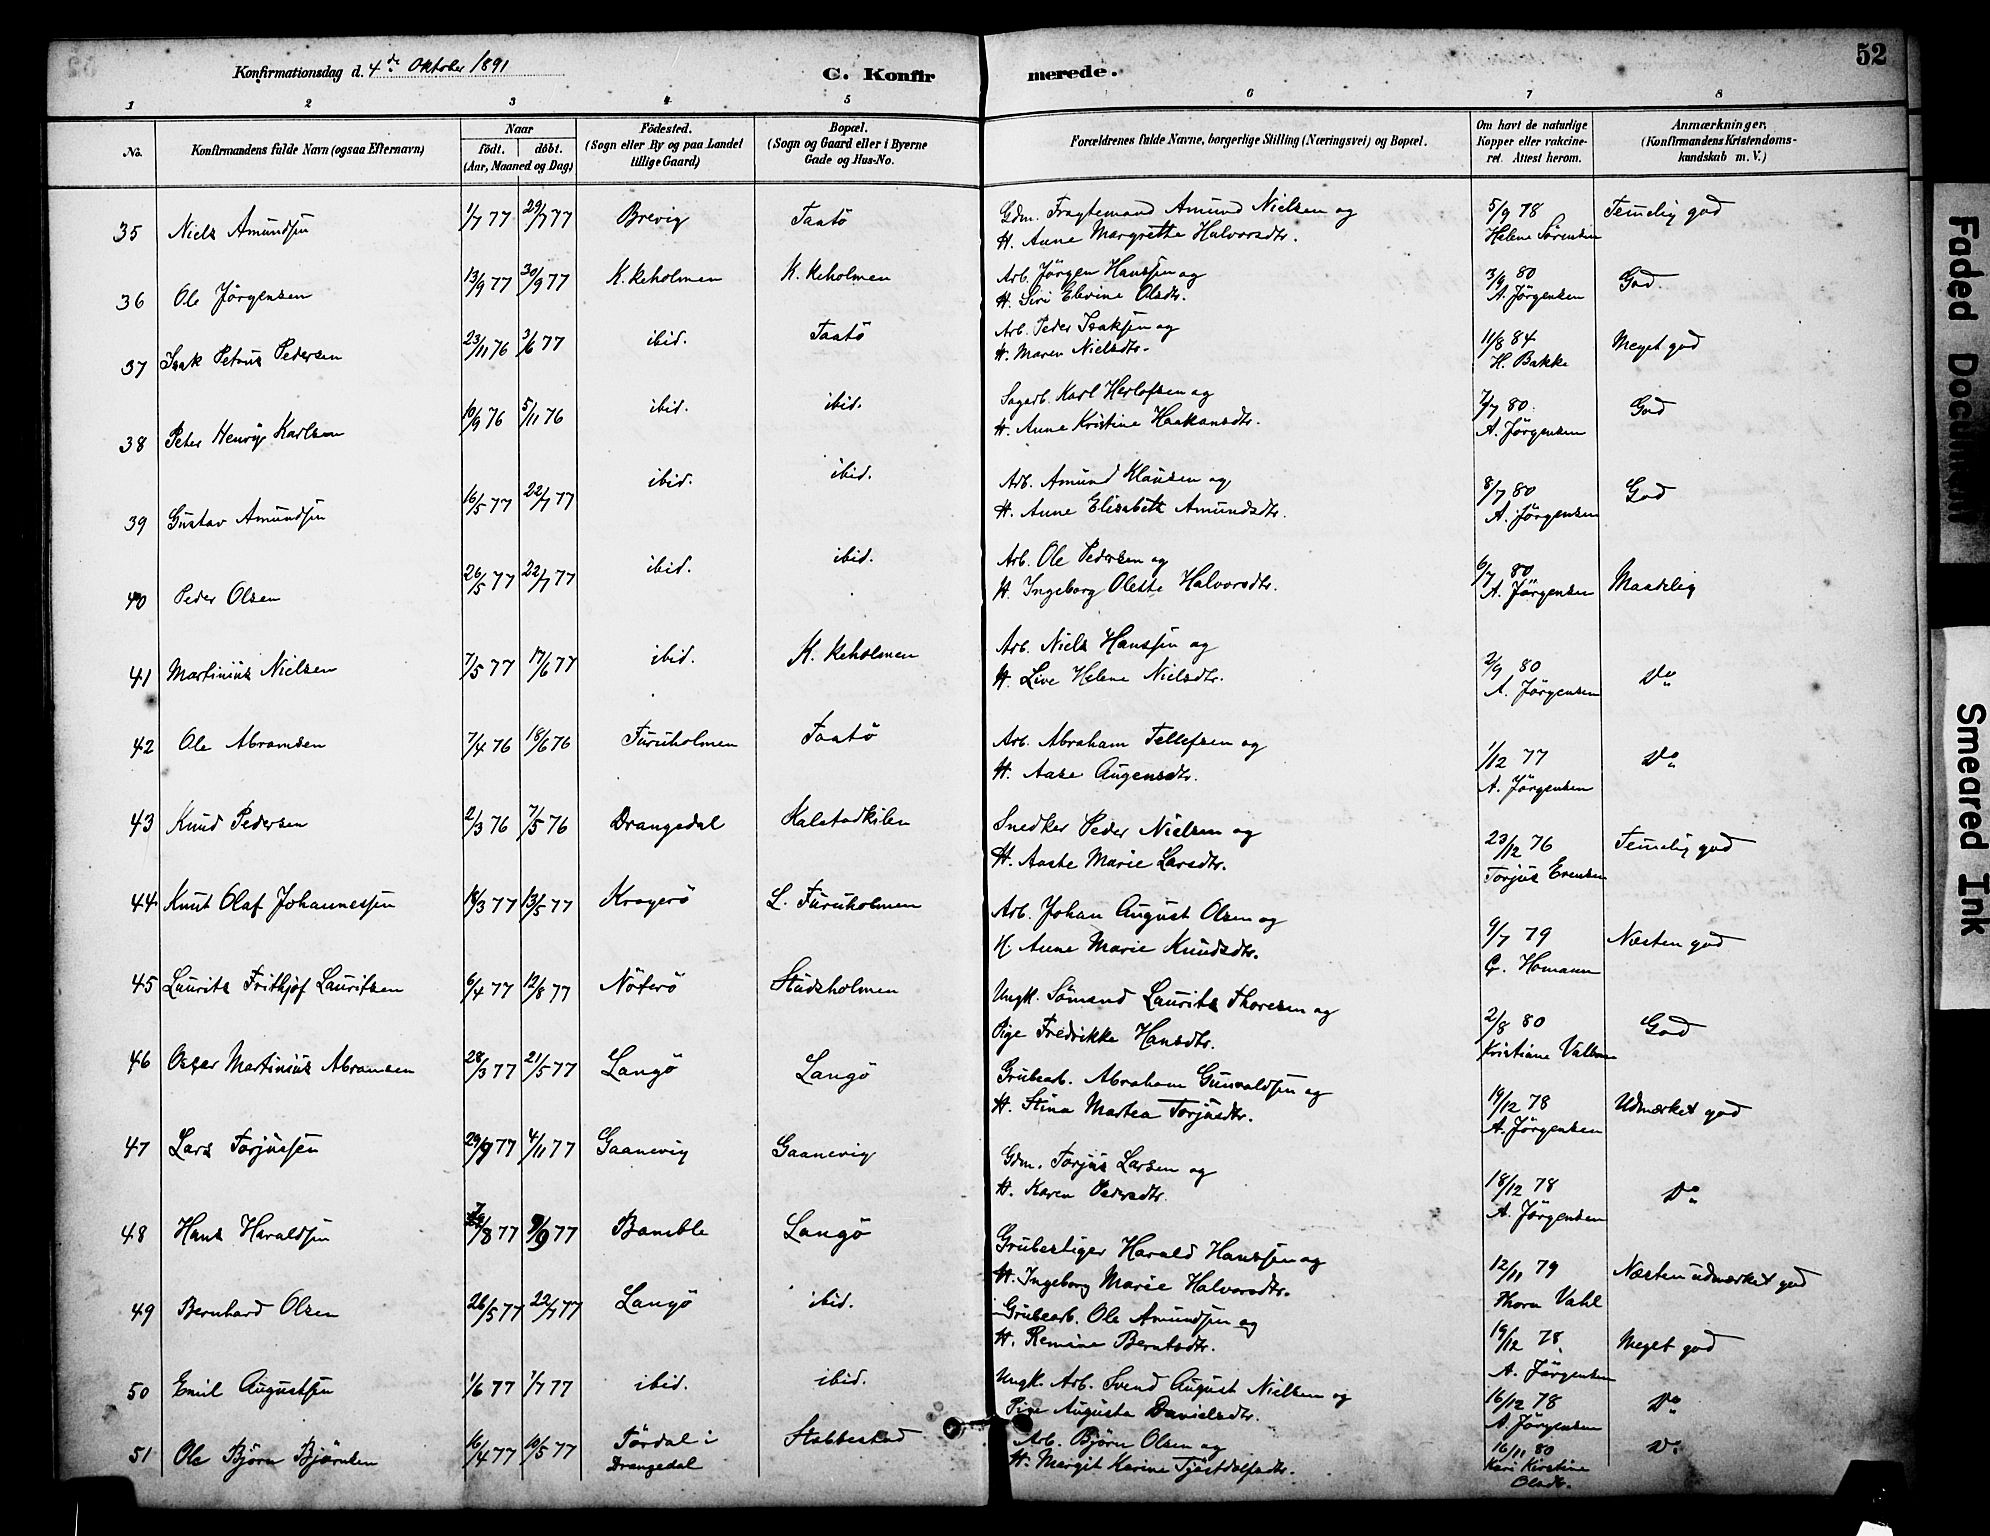 52
Konfirmationsdag d. 4de Oktober 1891
C. Konfirmerede.
1 2 3 4 5 6 7 8
No.
Konfirmandens fulde Navn (ogsaa Efternavn)
Naar
födt. döbt.
(Aar, Maaned og Dag)
Födested.
(Sogn eller By og paa Landet
tillige Gaard)
Bopæl.
(Sogn og Gaard eller i Byerne
Gade og Hus-No.
Forældrenes fulde Navne, borgerlige Stilling (Næringsvei) og Bopæl.
Om havt de naturlige
Kopper eller vakcine-
ret. Attest herom.
Anmærkninger.
(Konfirmandens Kristendoms-
kundskab m. V.)
35 Niels Amundsen 1/7 77 29/7 77 Brevig Taatö Gdm. Fragtemand Amund Nielsen og 5/9 78 Temelig god
H. Anne Margrethe Halvorsdtr. Helene Sörensen
36 Ole Jörgensen 13/9 77 30/9 77 K. Keholmen K. Keholmen Arb. Jörgen Hanssen og 3/9 80 God
H. Siri Elevine Olsdtr. A. Jörgensen
37 Isak Petrus Pedersen 23/11 76 3/6 77 ibid. Taatö Arb. Peder Isaksen og 11/8 84 Meget god
H. Maren Nielsdtr. H. Bakke
38 Peter Henrik Karlsen 10/9 76 5/11 76 ibid. ibid. Sagarb. Karl Herlofsen og 7/7 80 God
H. Anne Kristine Haakansdtr. A. Jörgensen
39 Gustav Amundsen 16/5 77 22/7 77 ibid. ibid. Arb. Amund Klausen og 8/7 80 God
H. Anne Elisabeth Amundsdtr. A. Jörgensen
40 Peder Olsen 26/5 77 22/7 77 ibid. ibid. Arb. Ole Pedersen og 6/7 80 Maadelig
H. Ingeborg Olette Halvorsdtr. A. Jörgensen
41 Martinius Nielsen 7/5 77 17/6 77 ibid. K. Keholmen Arb. Niels Hanssen og 2/9 80 Do
H. Live Helene Nielsdtr. A. Jörgensen
42 Ole Abramsen 7/4 76 18/6 76 Furuholmen Taatö Arb. Abraham Tellefsen og 1/12 77 Do
H. Aase Augensdtr. A. Jörgensen
43 Knud Pedersen 2/3 76 7/5 76 Drangedal Kalstadkilen Snedker Peder Nielsen og 23/12 76 Temelig god
H. Aaste Marie Larsdtr. Torjus Evensen
44 Knut Olaf Johannessen 18/3 77 13/5 77 Kragerö L. Furuholmen Arb. Johan August Olsen og 9/7 79 Næsten god
H. Anne Marie Knudsdtr. C. Homann
45 Laurits Frithjof Lauritsen 6/4 77 12/8 77 Nöterö Studsholmen Ungk. Sömand Laurits Thoresen og 2/8 80 God
Pige Fredrikke Hansdtr. Kristiane
46 Oscar Martinius Abramsen 28/3 77 21/5 77 Langö Langö Grubearb. Abraham Gunvaldsen og 19/12 78 Udmærket god
H. Stina Martea Torjusdtr. A. Jörgensen
47 Lars Torjussen 29/9 77 4/11 77 Gaanevig Gaanevig Gdm. Torjus Larsen og 18/12 78 Do
H. Karen Pedersdtr. A. Jörgensen
48 Hans Haraldsen /8 77 9/9 77 Bamble Langö Grubestiger Harald Hanssen og 12/11 79 Næsten udmærket god
H. Ingeborg Marie Halvorsdtr. Thora Vahl
49 Bernhard Olsen 26/5 77 22/7 77 Langö ibid. Grubearb. Ole Amundsen og 19/12 78 Meget god
H. Remine Berntsdtr. A. Jörgensen
50 Emil Augustsen 1/6 77 7/7 77 ibid. ibid. Ungk. Arb. Svend August Nielsen og 16/12 78 Do
Pige Augusta Danielsdtr. A. Jörgensen
51 Ole Björn Björnsen 16/4 77 10/5 77 Tördal i Stabbestad Arb. Björn Olsen og 16/11 80 Do
Drangedal H. Margit Karine Tjöstolfsdtr. Kari Kirstine
Olsdtr.
Faded Document
Smeared Ink